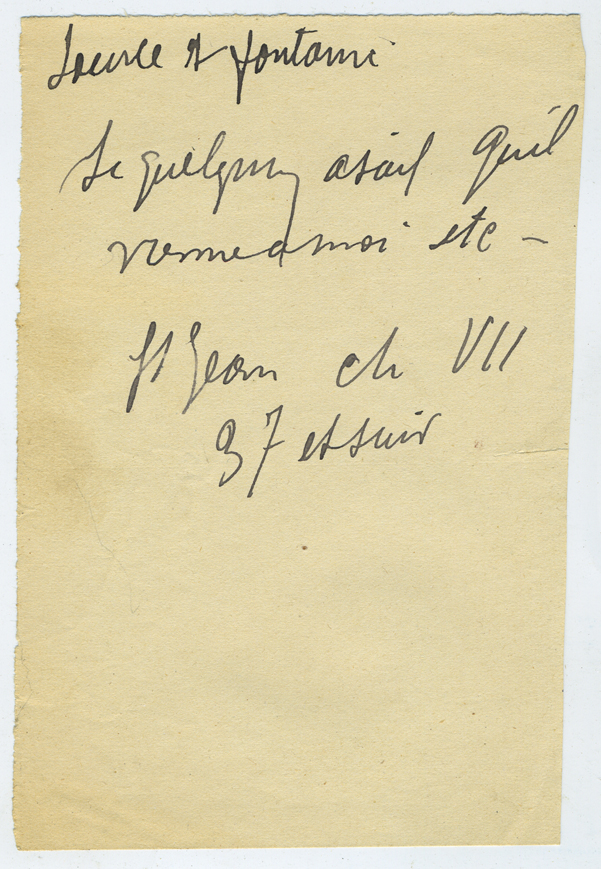 Source et fontaine
Si quelqu'un a soif qu'il
vienne a moi etc -
St Jean ch VII
37 et suiv